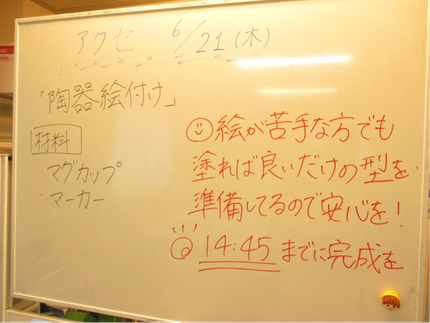 アクセ 6/21(木)
「陶器絵付け」
材料
・マグカップ
・マーカー
絵が苦手な方でも
塗れば良いだけの型を
準備してるので安心を!
14:45までに完成を